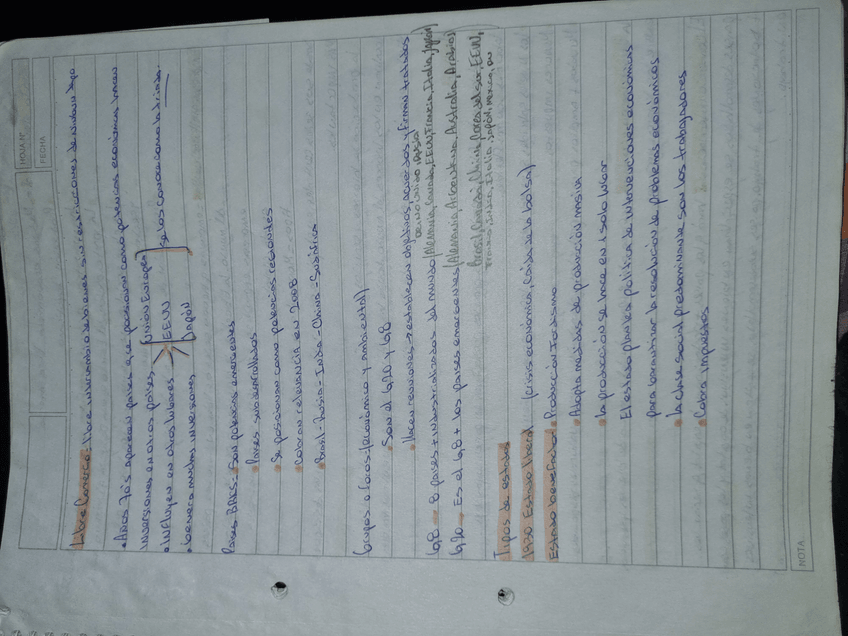 HOJA Nº
FECHA
Libre Comercio: libre intercambio de bienes sin restricciones de ningún tipo
•Años 70s aparecen países que posicionan como potencias económicas hacen
inversiones en otros países.
•Influyen en otros lugares → EEUU
Unión Europea
Japón
se los conoce como la triada.
•Genera muchas inversiones
Países BRICS - Son potencias emergentes
•Países subdesarrollados
•Se posicionan como potencias regionales
•Cobran relevancia en 2008
•Brasil - Rusia - India - China - Sudáfrica
Grupos o focos: (económico y ambiental)
•Son el G20 y G8
•Hacen reuniones → establecen objetivos, acuerdos y firman tratados
G8 - 8 países + industrializados del mundo (Alemania, Canadá, EEUU, Francia, Italia, Japón
Reino Unido, Rusia)
G20 - Es el G8 + los países emergentes (Alemania, Argentina, Australia, Arabia,
Brasil, Canadá, China, Corea del sur, EEUU,
Francia, India, Italia, Japón, México,
Tipos de estados
1930 Estado liberal (crisis económica, caída de la bolsa)
Estado benefactor • Producción fordismo
•Adopta medidas de producción masiva
•la producción se hace en 1 solo lugar
El estado plantea política de intervenciones económicas
para garantizar la resolución de problemas económicos
•la clase social predominante son los trabajadores
•Cobra impuestos
NOTA